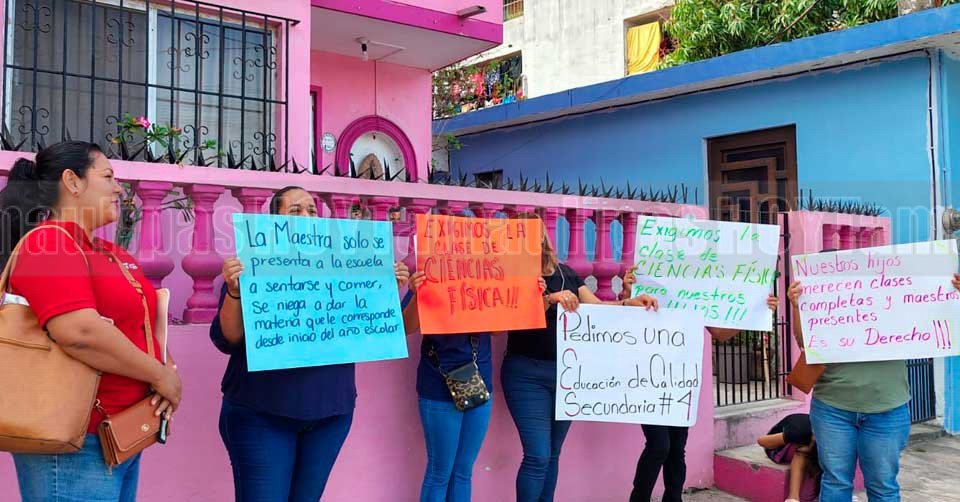 La Maestra solo se
presenta a la escuela
a sentarse y comer,
Se niega a dar la
materia que le corresponde
desde inicio del año escolar
EXIGIMOS LA
CLASE DE
CIENCIAS
FÍSICA!!!
Exigimos La
clase de
CIENCIAS FÍSICA
para nuestros
Pedimos una
Educación de Calidad
Secundaria #4
Nuestros hijos
merecen clases
completas y maestros
presentes
Es su Derecho!!!